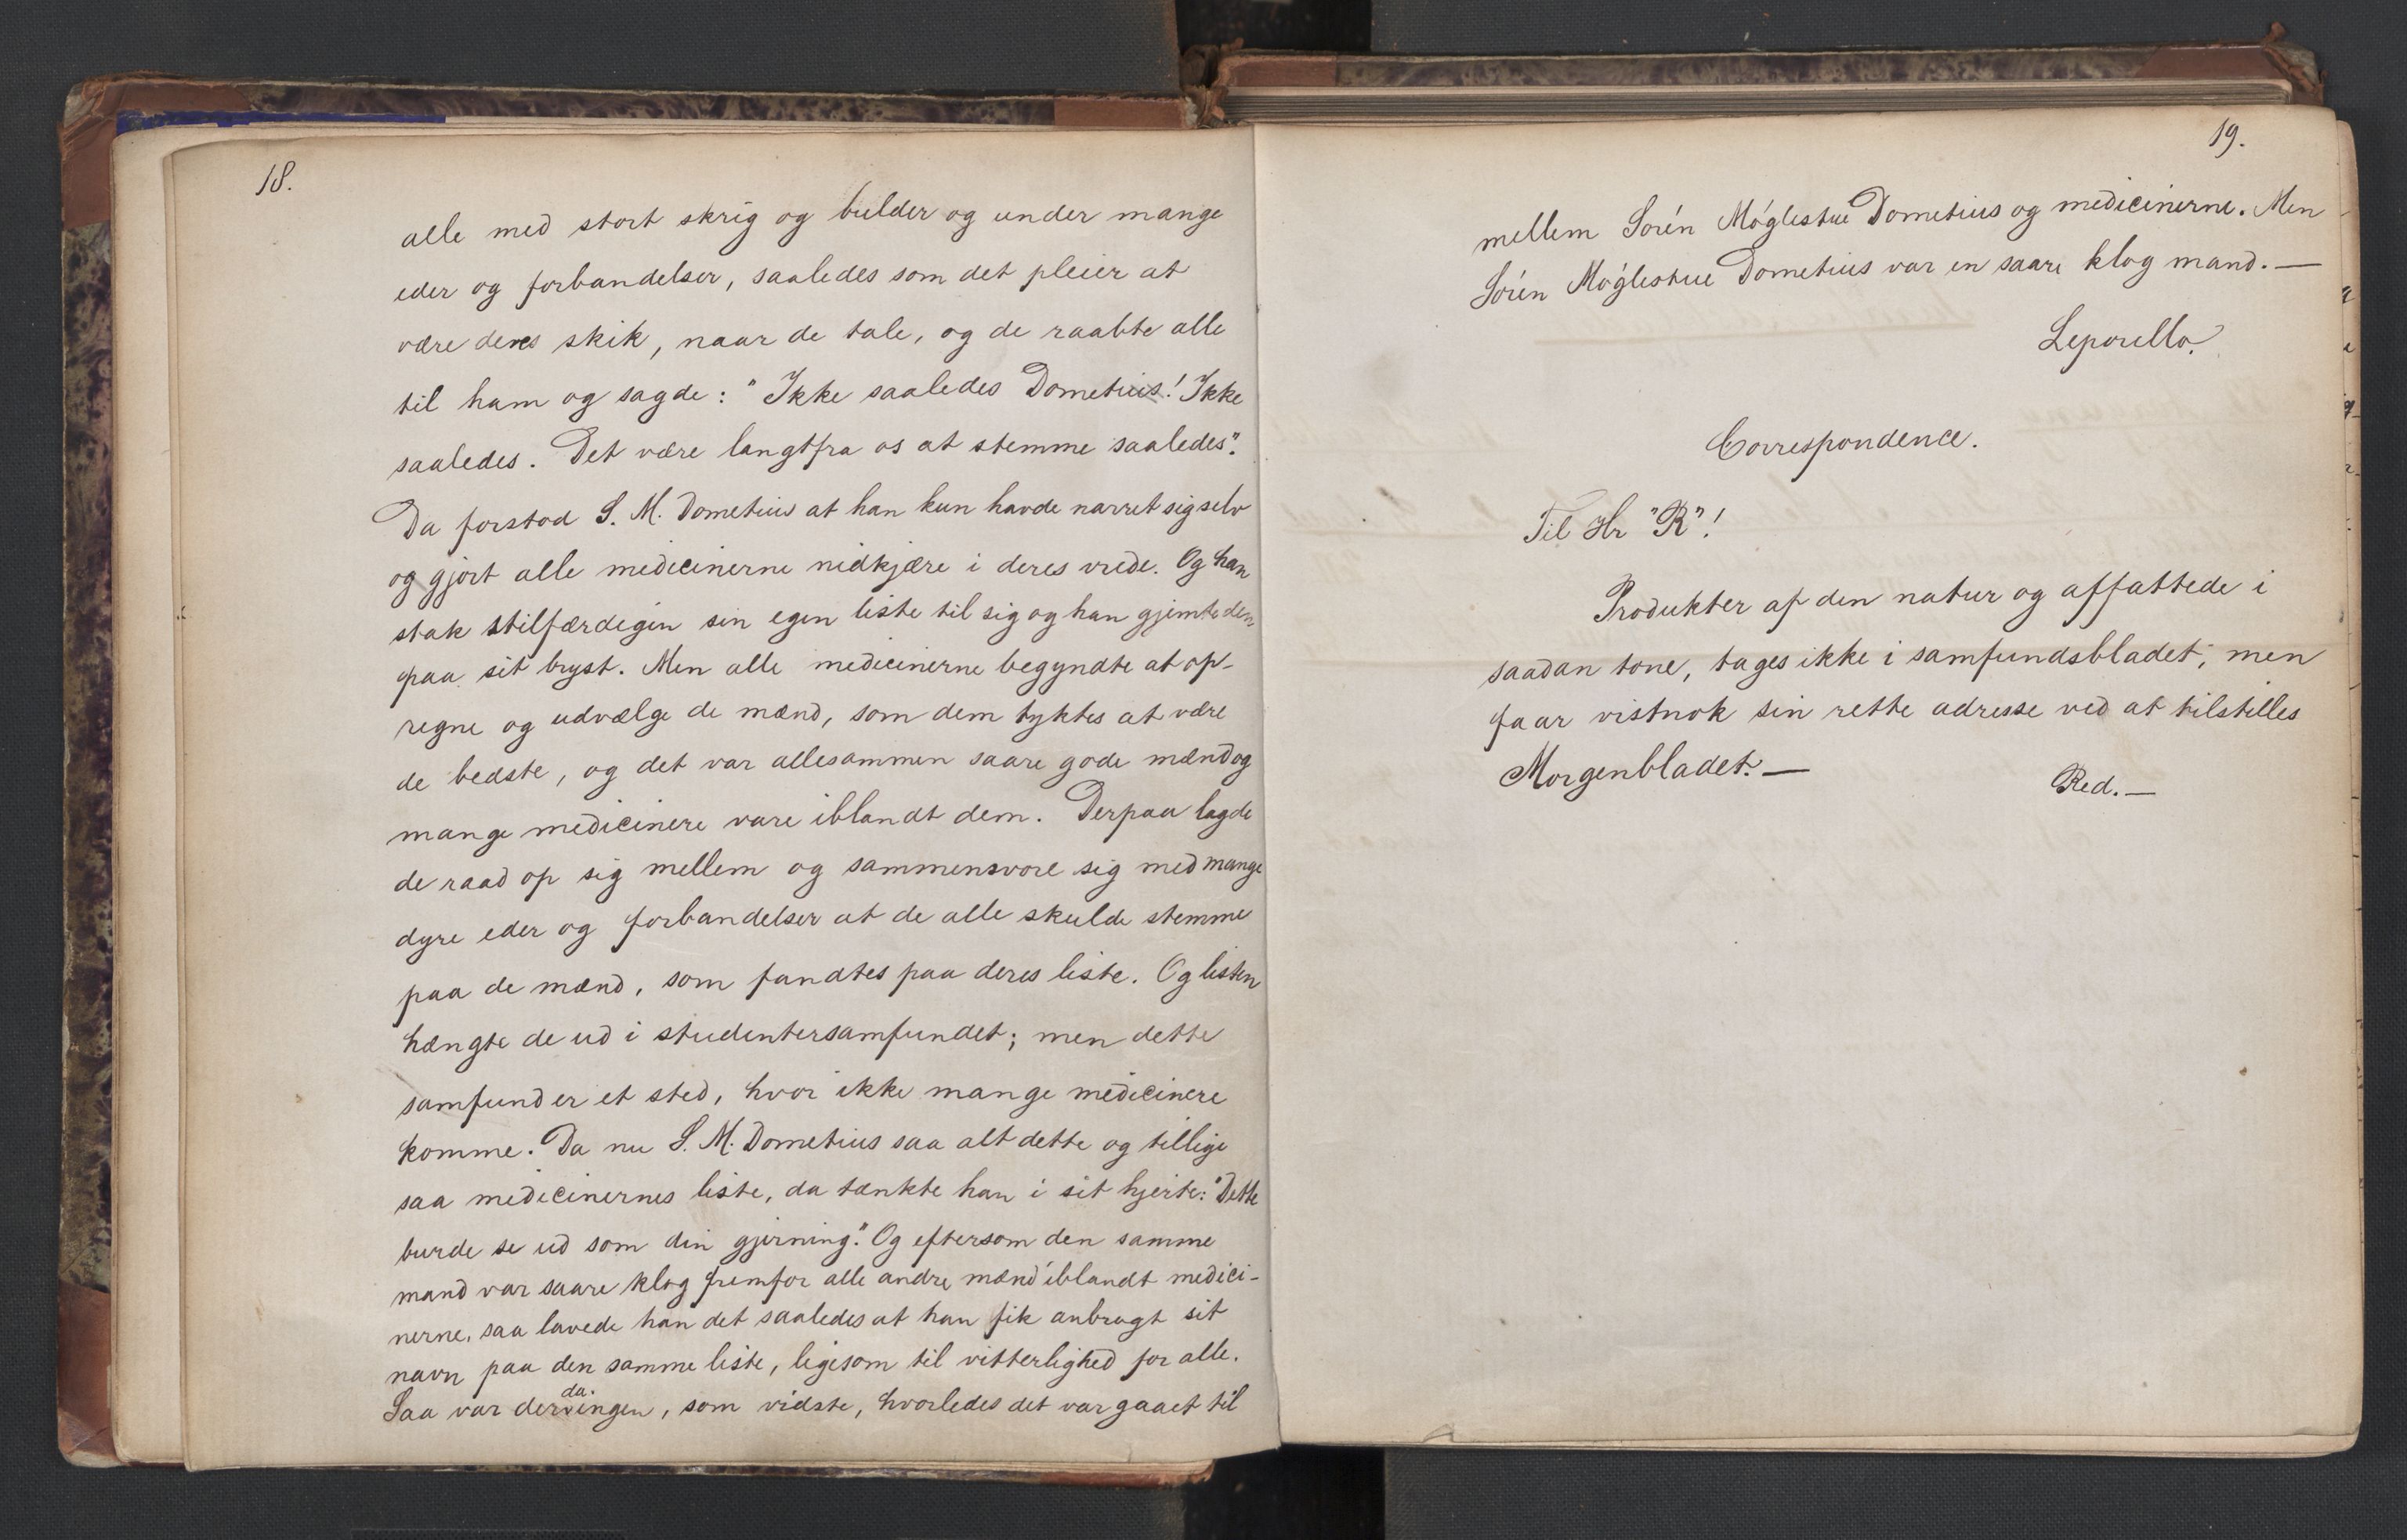 18.
alle med stort skrig og bulder og under mange
eder og forbandelser, saaledes som det pleier at
være deres skik, naar de tale, og de raabte alle
til ham og sagde: "Ikke saaledes Dometius! Ikke
saaledes. Det være langtfra os at stemme saaledes".
Da forstod S. M. Dometius at han kun havde narret sig selv
og gjort alle medicinerne nidkjære i deres vrede. Og han
stak stilfærdigen sin egen liste til sig og han gjemte den
paa sit bryst. Men alle medicinerne begyndte at op-
regne og udvælge de mænd, som dem tyktes at være
de bedste, og det var allesammen saare gode mænd og
mange medicinere vare iblandt dem. Derpaa lagde
de raad op sig mellem og sammensvore sig med mange
dyre eder og forbandelser at de alle skulde stemme
paa de mænd, som fandtes paa deres liste. Og listen
hængte de ud i studentersamfundet; men dette
samfund er et sted, hvor ikke mange medicinere
komme. Da nu S. M. Dometius saa alt dette og tillige
saa medicinernes liste, da tænkte han i sit hjerte: "Dette
burde se ud som din gjerning." Og eftersom den samme
mand var saare klog fremfor alle andre mænd iblandt medici-
nerne, saa lavede han det saaledes at han fik anbragt sit
navn paa den samme liste, ligesom til vitterlighed for alle.
Saa var der da ingen, som vidste, hvorledes det var gaaet til
19.
mellem Sørén Møglestue Dometius og medicinerne. Men
Sørén Møglestue Dometius var en saare klog mand. —
Leporello.
Correspondence.
Til Hr "R"!
Produkter af den natur og affattede i
saadan tone, tages ikke i samfundsbladet; men
faar vistnok sin rette adresse ved at tilstilles
Morgenbladet. —
Red. —